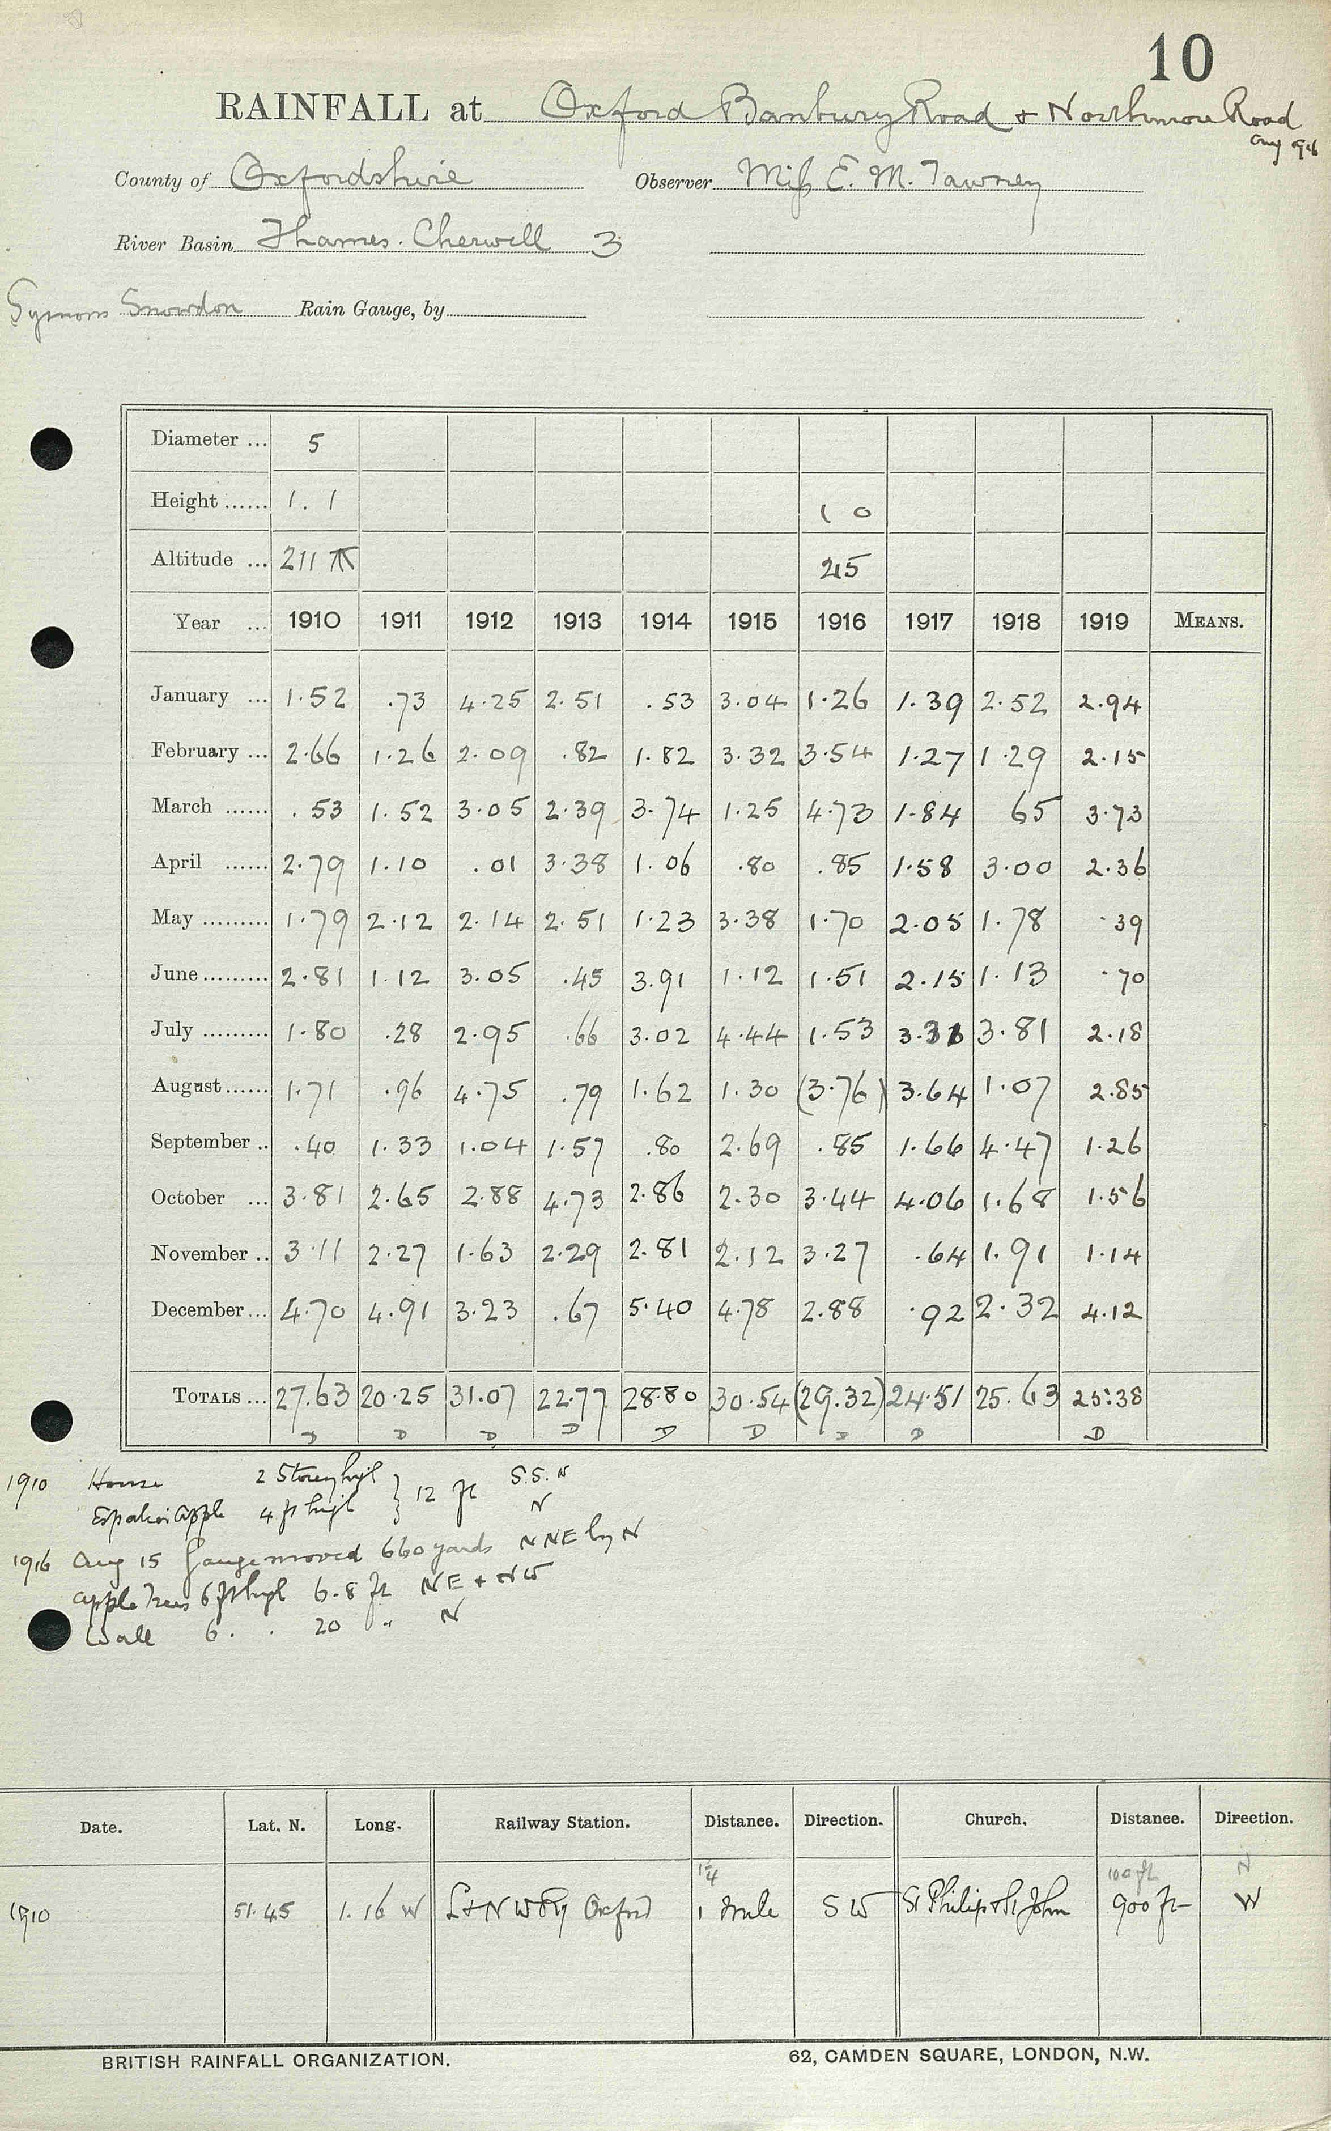 10
RAINFALL at Oxford Banbury Road & Northmoor Road
Aug 1916
County of Oxfordshire Observer Miss E. M. Tawney
River Basin Thames. Cherwell 3
Symons Snowdon Rain Gauge, by
Diameter ... 5
Height ...... 1. 1 1 0
Altitude ... 211 215
Year ... 1910 1911 1912 1913 1914 1915 1916 1917 1918 1919 MEANS.
January ... 1.52 .73 4.25 2.51 .53 3.04 1.26 1.39 2.52 2.94
February ... 2.66 1.26 2.09 .82 1.82 3.32 3.54 1.27 1.29 2.15
March ...... .53 1.52 3.05 2.39 3.74 1.25 4.73 1.84 65 3.73
April ...... 2.79 1.10 .01 3.38 1.06 .80 .85 1.58 3.00 2.36
May ......... 1.79 2.12 2.14 2.51 1.23 3.38 1.70 2.05 1.78 .39
June ......... 2.81 1.12 3.05 .45 3.91 1.12 1.51 2.15 1.13 .70
July ......... 1.80 .28 2.95 .66 3.02 4.44 1.53 3.31 3.81 2.18
August ...... 1.71 .96 4.75 .79 1.62 1.30 (3.76) 3.64 1.07 2.85
September .. .40 1.33 1.04 1.57 .80 2.69 .85 1.66 4.47 1.26
October ... 3.81 2.65 2.88 4.73 2.86 2.30 3.44 4.06 1.68 1.56
November .. 3.11 2.27 1.63 2.29 2.81 2.12 3.27 .64 1.91 1.14
December ... 4.70 4.91 3.23 .67 5.40 4.78 2.88 .92 2.32 4.12
TOTALS ... 27.63 20.25 31.07 22.77 28.80 30.54 (29.32) 24.51 25.63 25.38
D D D D D D D D D
1910 House 2 Storey high } 12 ft S.S.W
Espalier Apple 4 ft high N
1916 Aug 15 Gauge moved 660 yards NNE by N
Apple Trees 6 ft high 6.8 ft NE & NW
Wall 6 . . 20 " N
Date. Lat. N. Long. Railway Station. Distance. Direction. Church. Distance. Direction.
1¼ 100 ft N
1910 51.45 1.16 W L&NW Ry Oxford 1 mile SW St Philip & St John 900 ft W
BRITISH RAINFALL ORGANIZATION. 62, CAMDEN SQUARE, LONDON, N.W.